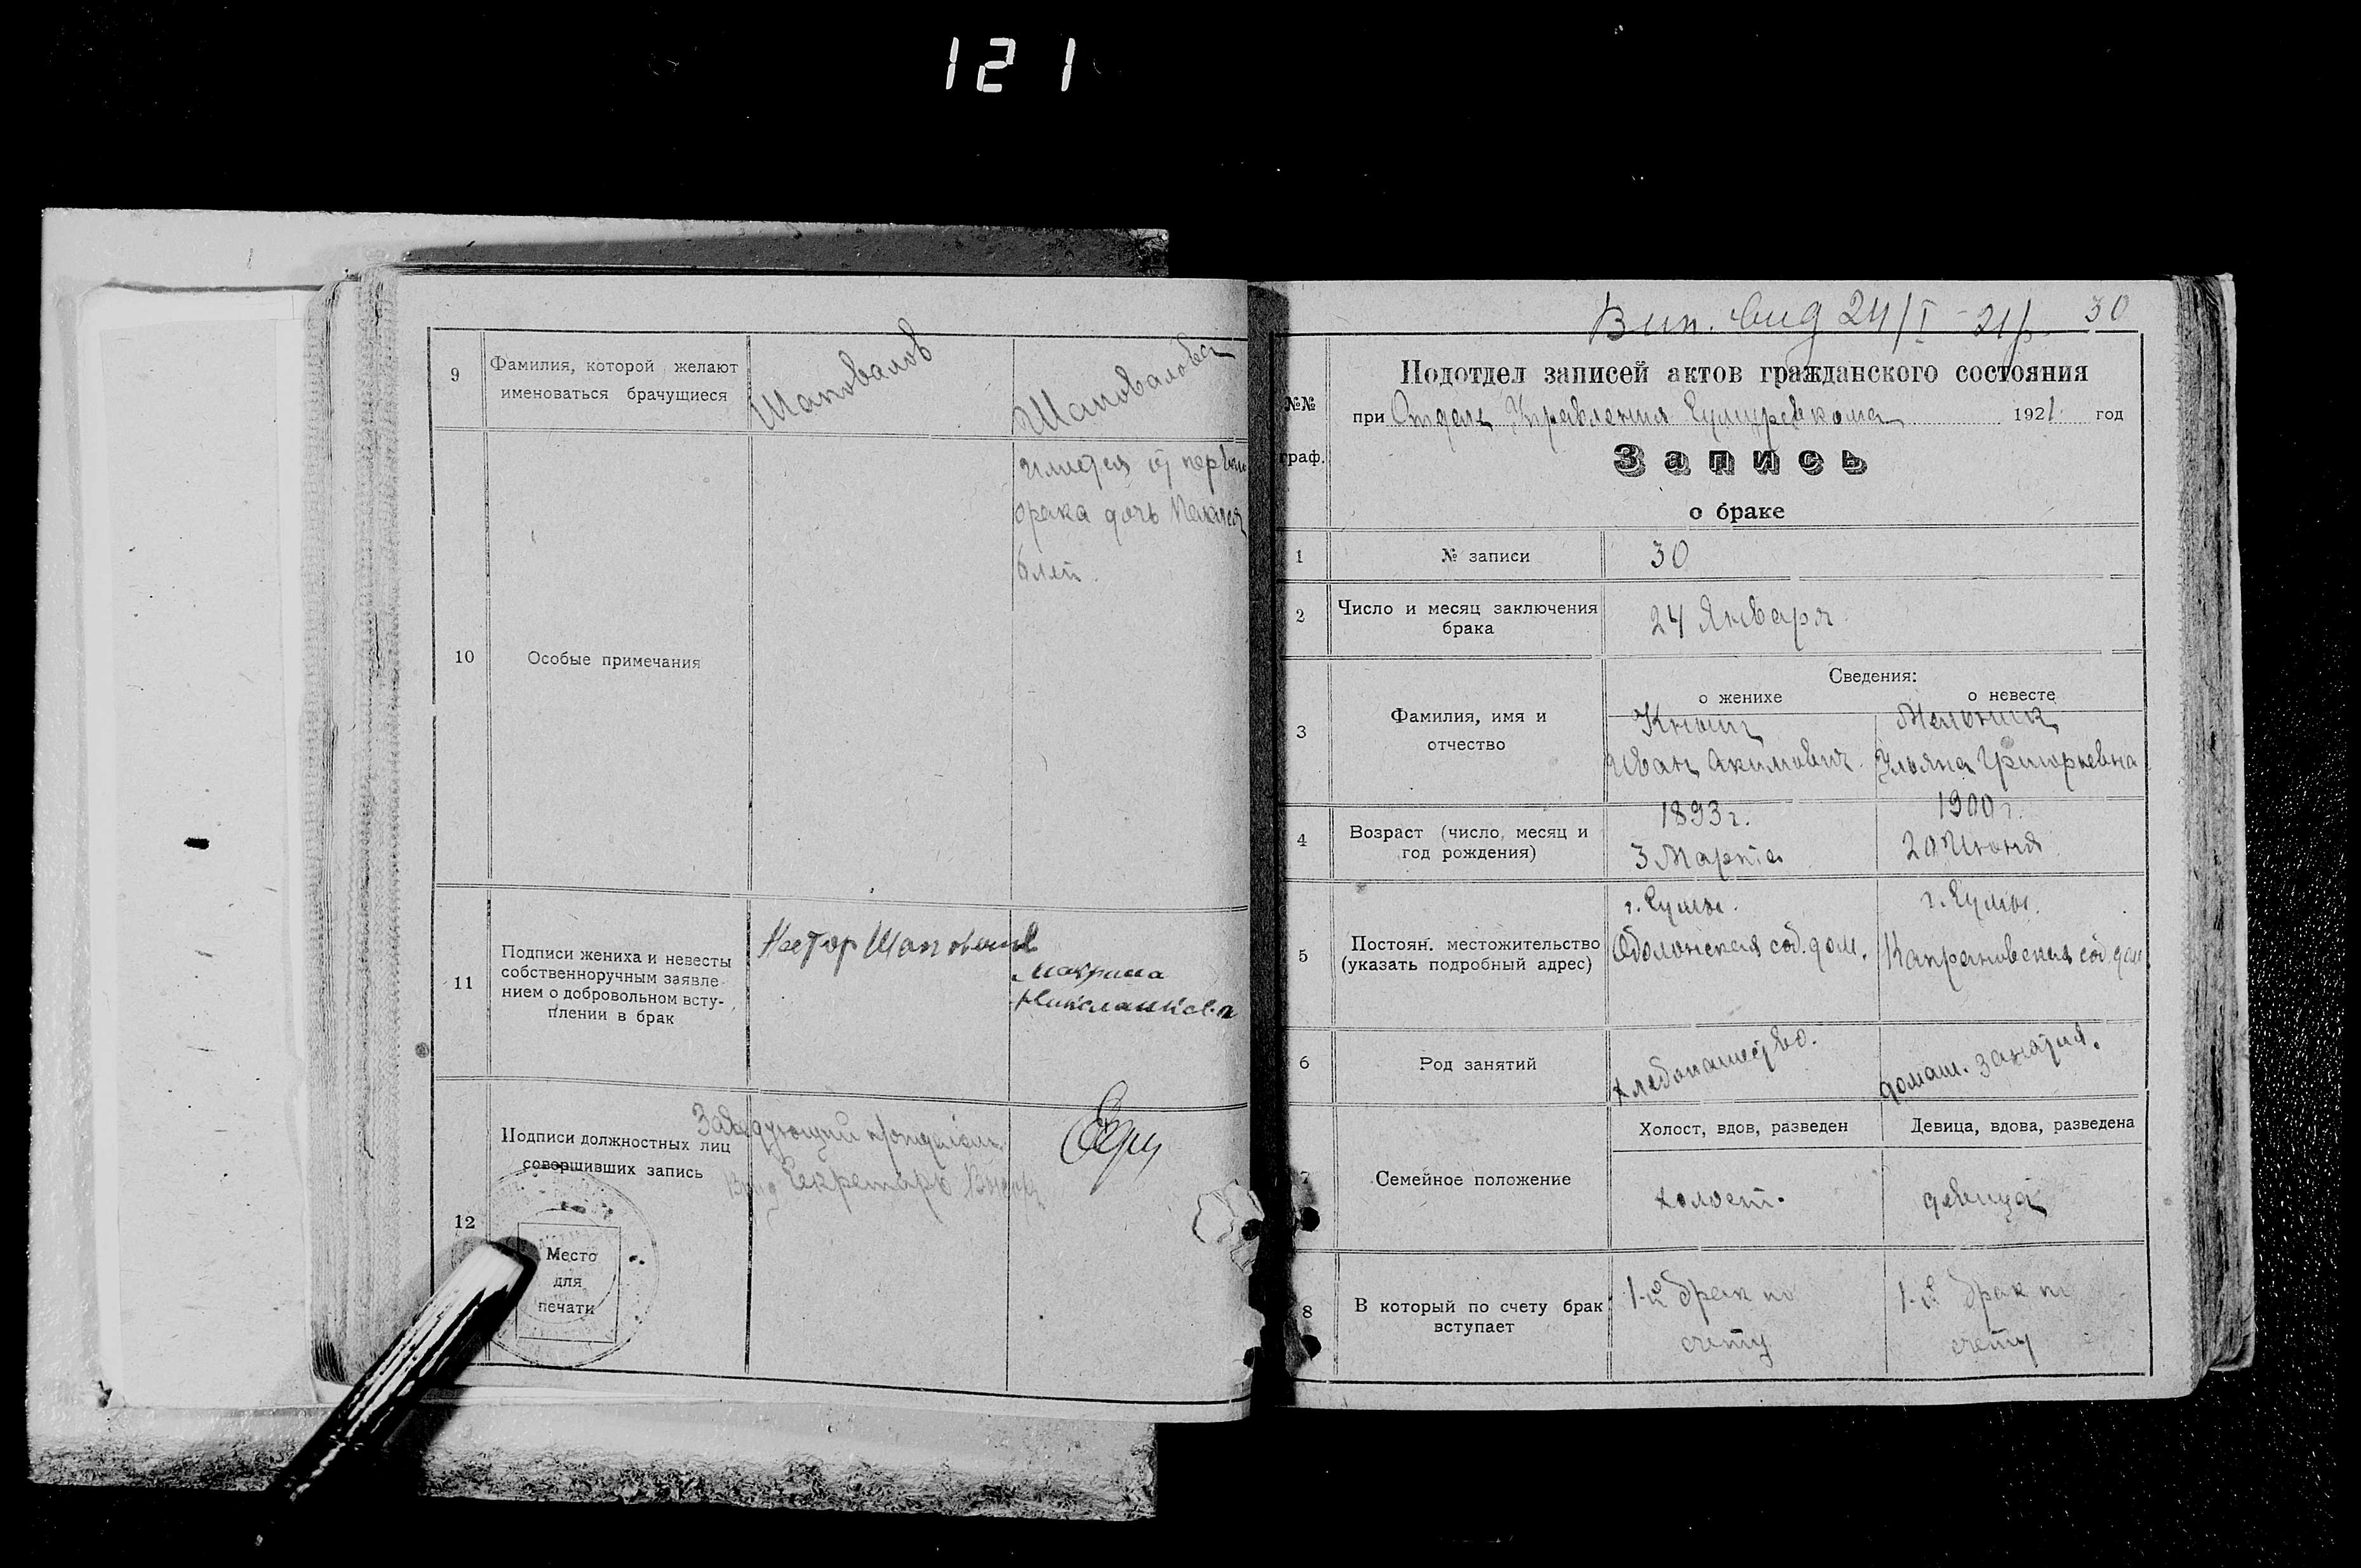 121
9
Фамилия, которой желают
именоваться брачущиеся
Шаповалов
Шаповалова
10
Особые примечания
брака дочь
11
Подписи жениха и невесты
собственноручным заявле-
нием о добровольном всту-
плении в брак
Нестор Шаповалов
Макрина
12
Подписи должностных лиц
совершивших запись
Заведующий
Секретарь
Место
для
печати
Вип. вид 24/I - 21 р.
30
№№
граф.
Подотдел записей актов гражданского состояния
при Отделе Управления Сумуревкома 1921 год
Запись
о браке
1
№ записи
30
2
Число и месяц заключения
брака
24 Января
3
Фамилия, имя и
отчество
Сведения:
о женихе
о невесте
Кныш
Иван Акимович
Мельник
Ульяна Григорьевна
4
Возраст (число, месяц и
год рождения)
1893 г.
3 Марта
1900 г.
20 Июня
5
Постоян. местожительство
(указать подробный адрес)
г. Сумы.
Оболонская соб. дом.
г. Сумы.
соб. дом
6
Род занятий
хлебопашество.
домаш. занятия.
7
Семейное положение
Холост, вдов, разведен
Девица, вдова, разведена
холост.
девица
8
В который по счету брак
вступает
1-й брак по
счету
1-й брак по
счету